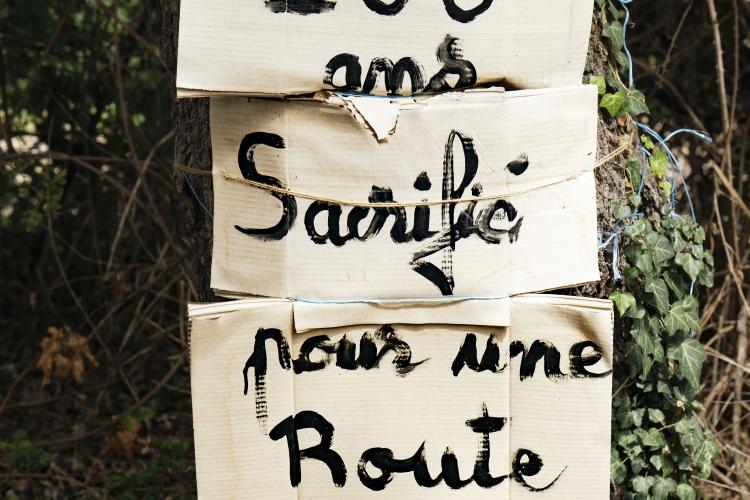 ans
Sacrifié
pour une
Route